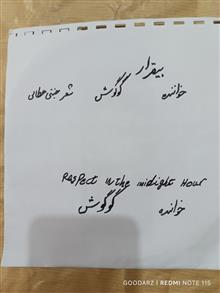 بیقرار
خواننده گوگوش شعر مجتبی عطایی
Respect in the midnight Hour
خواننده گوگوش
GOODARZ | REDMI NOTE 11S